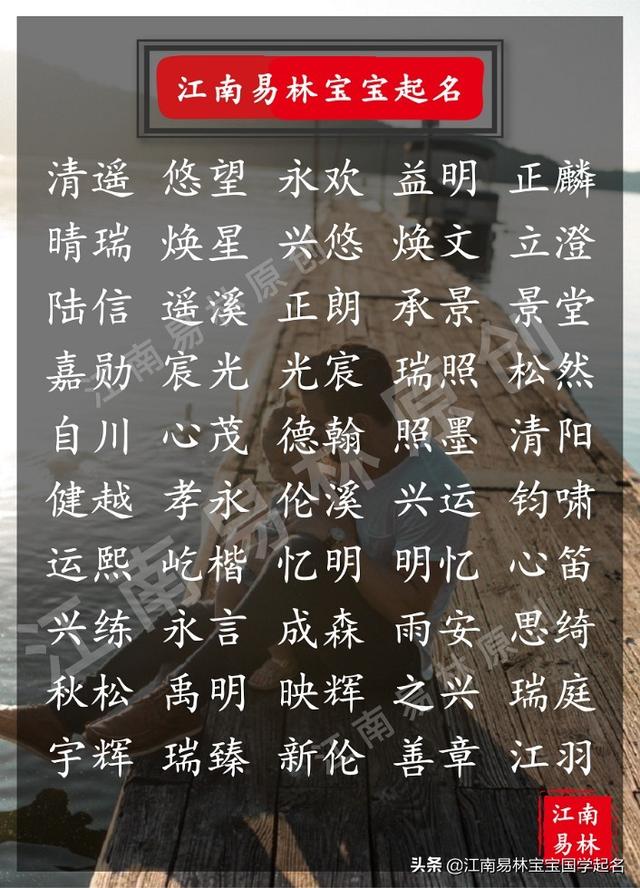 江南易林宝宝起名
清遥 悠望 永欢 益明 正麟
晴瑞 焕星 兴悠 焕文 立澄
陆信 遥溪 正朗 承景 景堂
嘉勋 宸光 光宸 瑞照 松然
自川 心茂 德翰 照墨 清阳
健越 孝永 伦溪 兴运 钧啸
运熙 屹楷 忆明 明忆 心笛
兴练 永言 成森 雨安 思绮
秋松 禹明 映辉 之兴 瑞庭
宇辉 瑞臻 新伦 善章 江羽
江南易林原创
江南易林原创
江南易林原创
江南
易林
头条 @江南易林宝宝国学起名